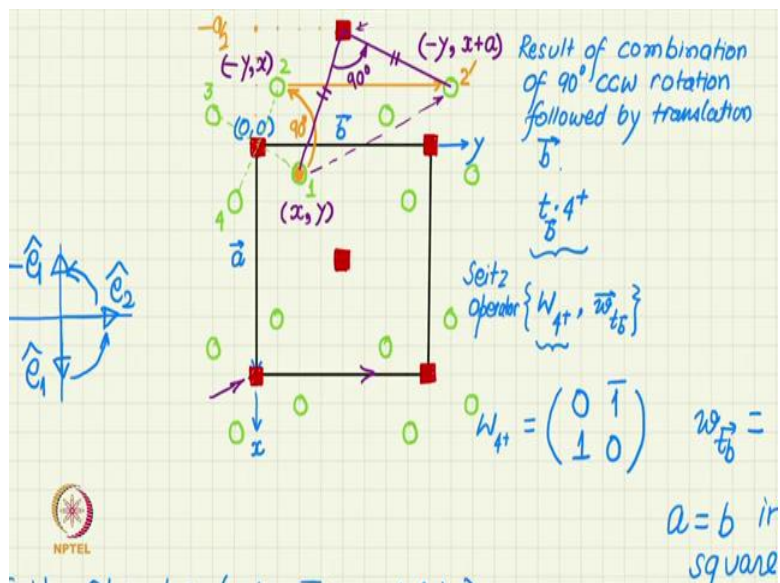 -a/2
(-y, x)
2
(-y, x+a)
2'
90°
3
(0,0)
90°
b
y
1
4
(x, y)
a
x
-ê1
ê2
ê1
Result of combination
of 90° CCW rotation
followed by translation
b
t_b · 4+
Seitz
Operator {W_4+, w_t_b}
W_4+ = (0 1̅
1 0)
w_t_b =
a = b in
square
NPTEL